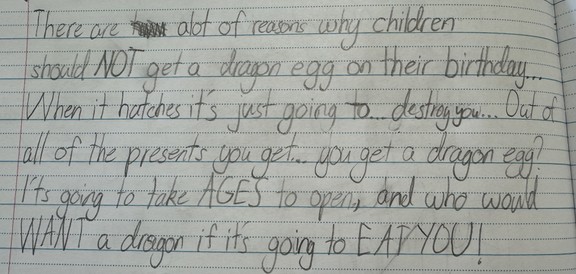 There are alot of reasons why children
should NOT get a dragon egg on their birthday...
When it hatches it's just going to... destroy you... Out of
all of the presents you get... you get a dragon egg?
I'ts going to take AGES to open, and who would
WANT a dragon if it's going to EAT YOU!